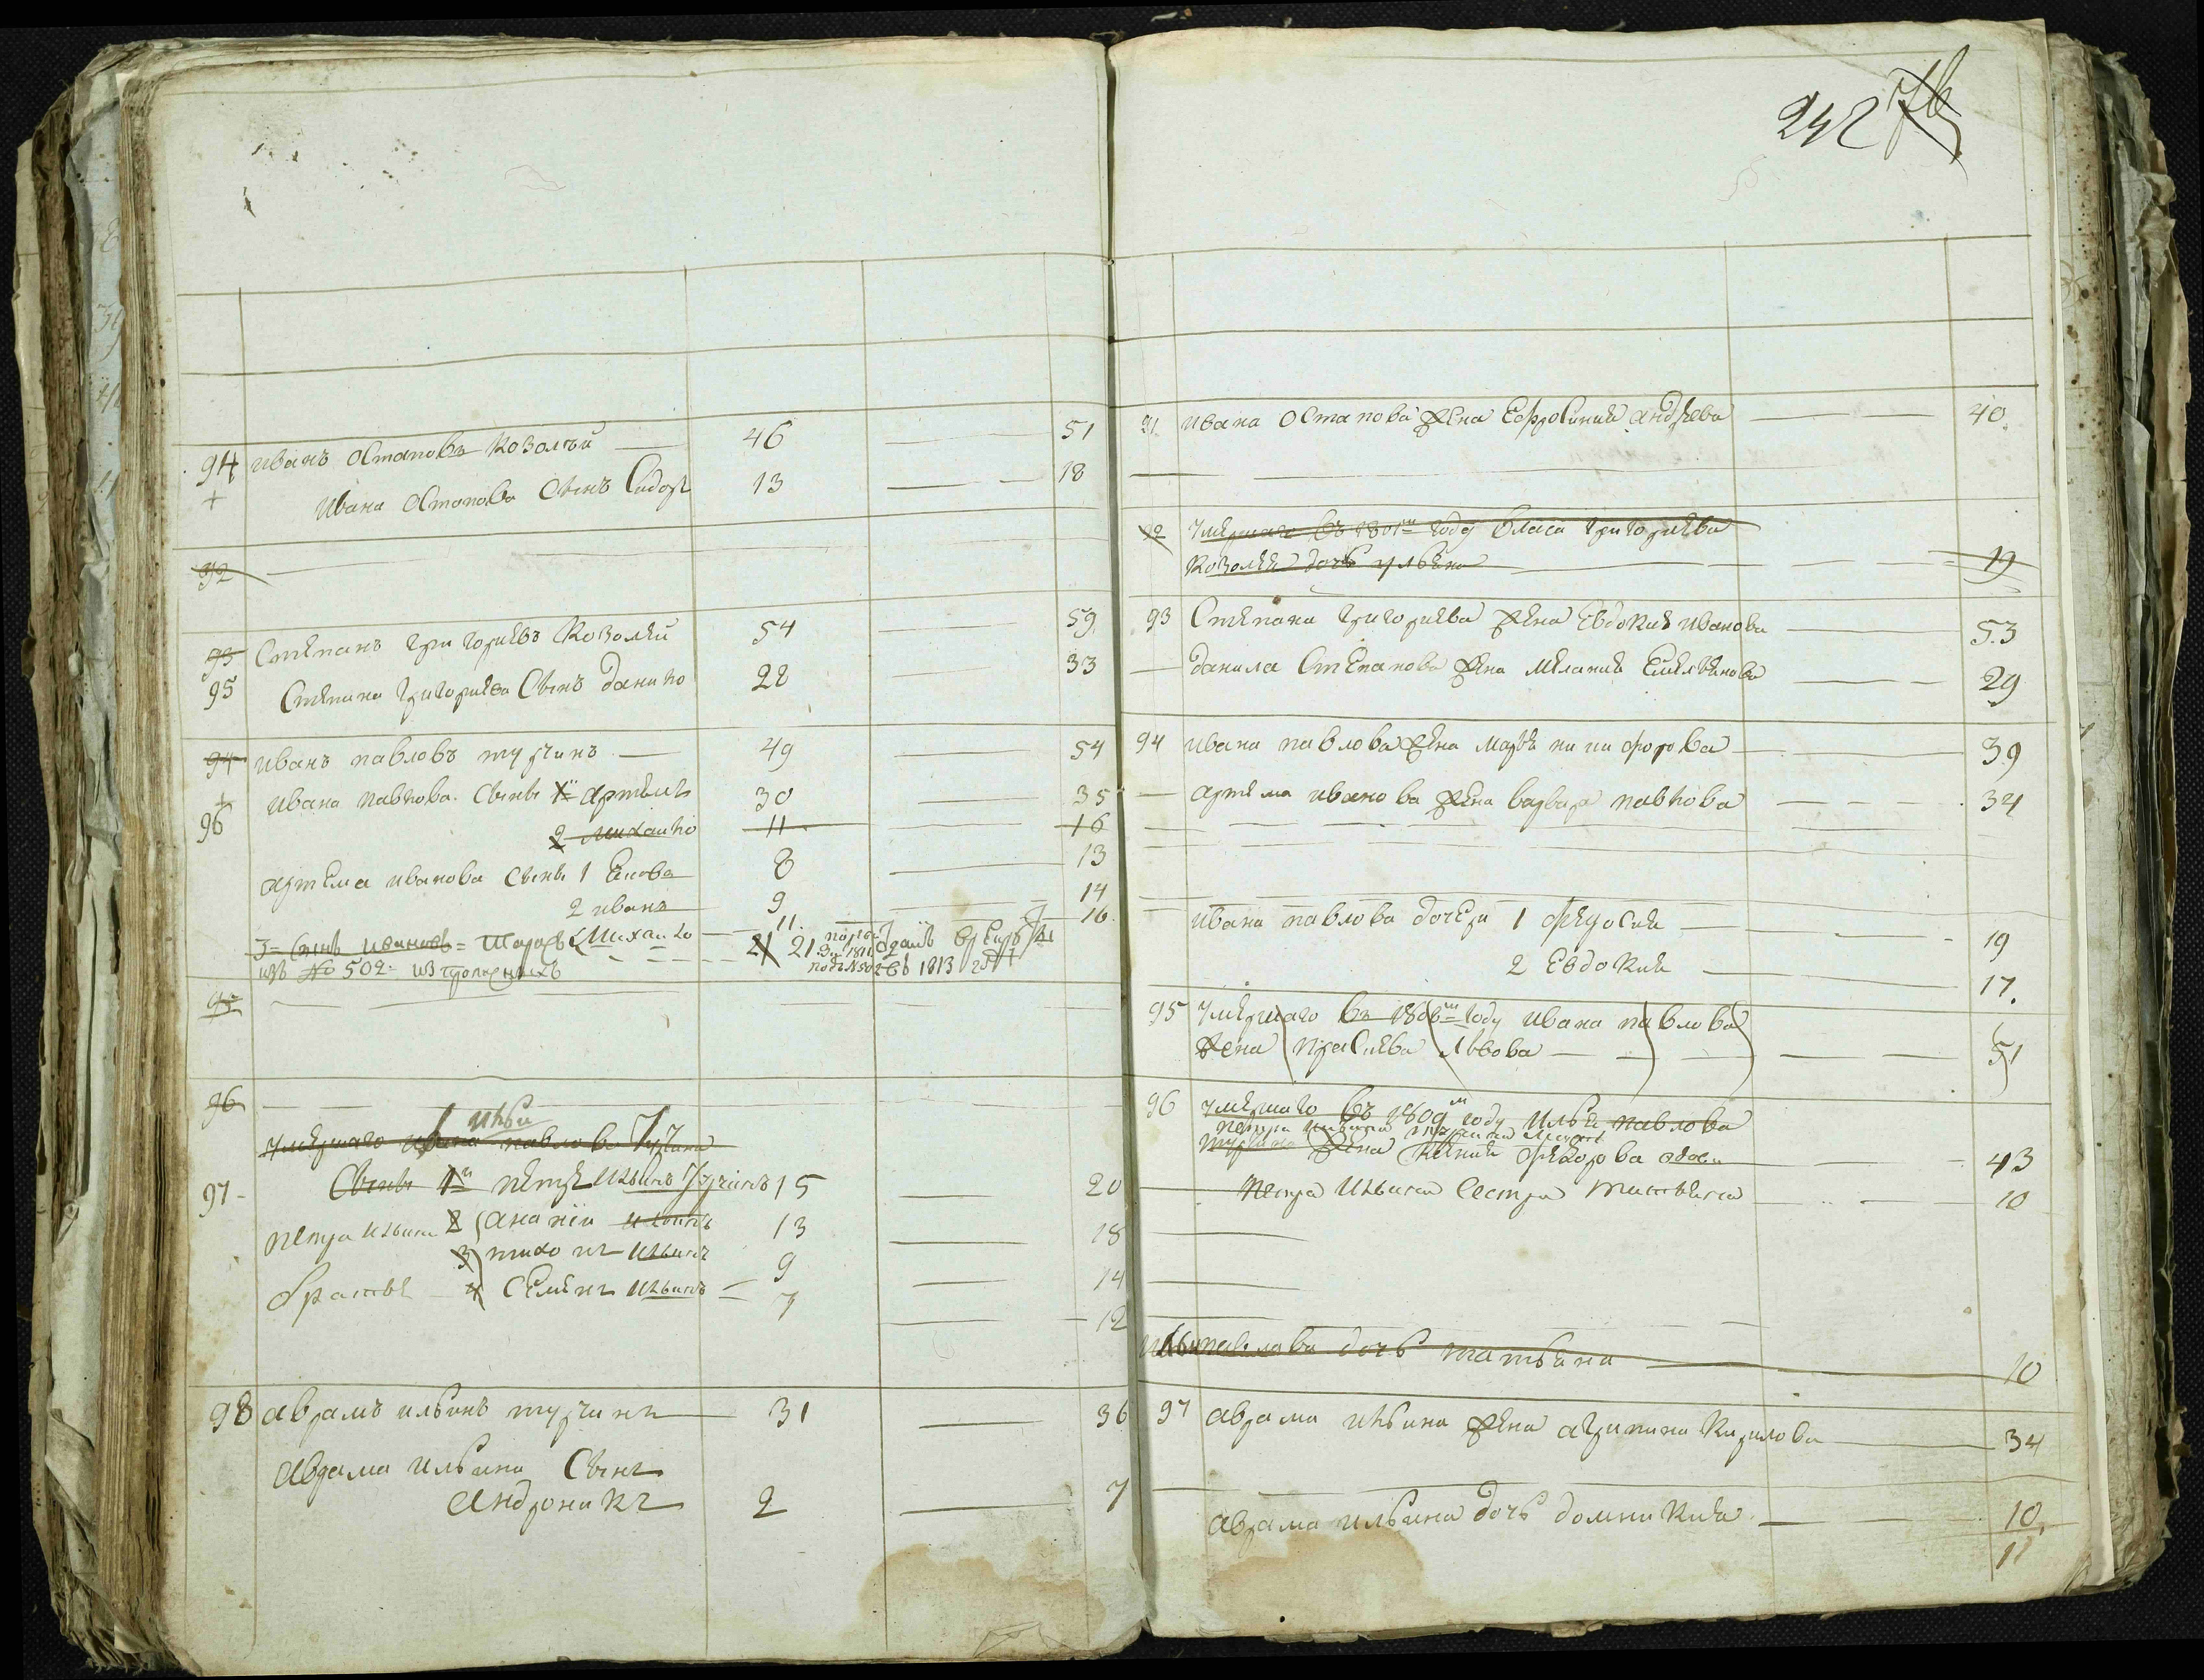 242 76
94 иванъ Остаповъ Козолъй — 46 — 51
+ Ивана Остапова Сынъ Сидоръ 13 — 18
92 —
93 Степанъ григорьевъ Козолъй 54 — 59
95 Степана григорьева Сынъ данило 28 — 33
94 иванъ павловъ турчинъ — 49 — 54
+ ивана павлова Сынъ 1й артемъ 30 — 35
96 2 михайло 11 — 16
артема иванова Сынъ 1 8 — 13
2 иванъ 9 — 14
3 = Сынъ ивановъ = Михайло — 11. — 16.
изъ № 502 21 21 1813
95 —
96 —
умершаго ивана павлова Турчина
Ильи
97 - Сынъ 1й петръ ильинъ Турчинъ 15 — 20
петра ильина 2 ананiи ильинъ 13 — 18
3 тихонъ ильинъ 9 — 14
братья 4 Семенъ ильинъ — 7 — 12
98 аврамъ ильинъ турчинъ — 31 — 36
аврама ильина Сынъ
андроникъ 2 — 7
91 ивана Остапова жена Ефросиния андреева — 40.
—
92 умершаго въ 1801м году власа григорьева
Козолея дочь ульяна — 19
93 Степана григорьева жена Евдокия иванова — 53
— данила Степанова жена мелания Емельянова — 29
94 ивана павлова жена марья никифорова — 39
— артема иванова жена варвара павлова — 34
ивана павлова дочери 1 федосия — 19
2 Евдокия — 17.
95 умершаго въ 1806м году ивана павлова
жена прасковья львова — 51
96 умершаго въ 1809м году ильи павлова
петра ильина
турчина жена ксения федорова вдова — 43
— петра ильина сестра татьяна — 10
ильи павлова дочь татьяна — 10
97 аврама ильина жена агрипина кирилова — 34
аврама ильина дочь домникия — 10.
11